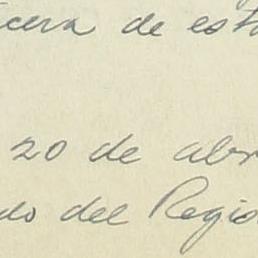 cera de est
20 de abr
do del Regis